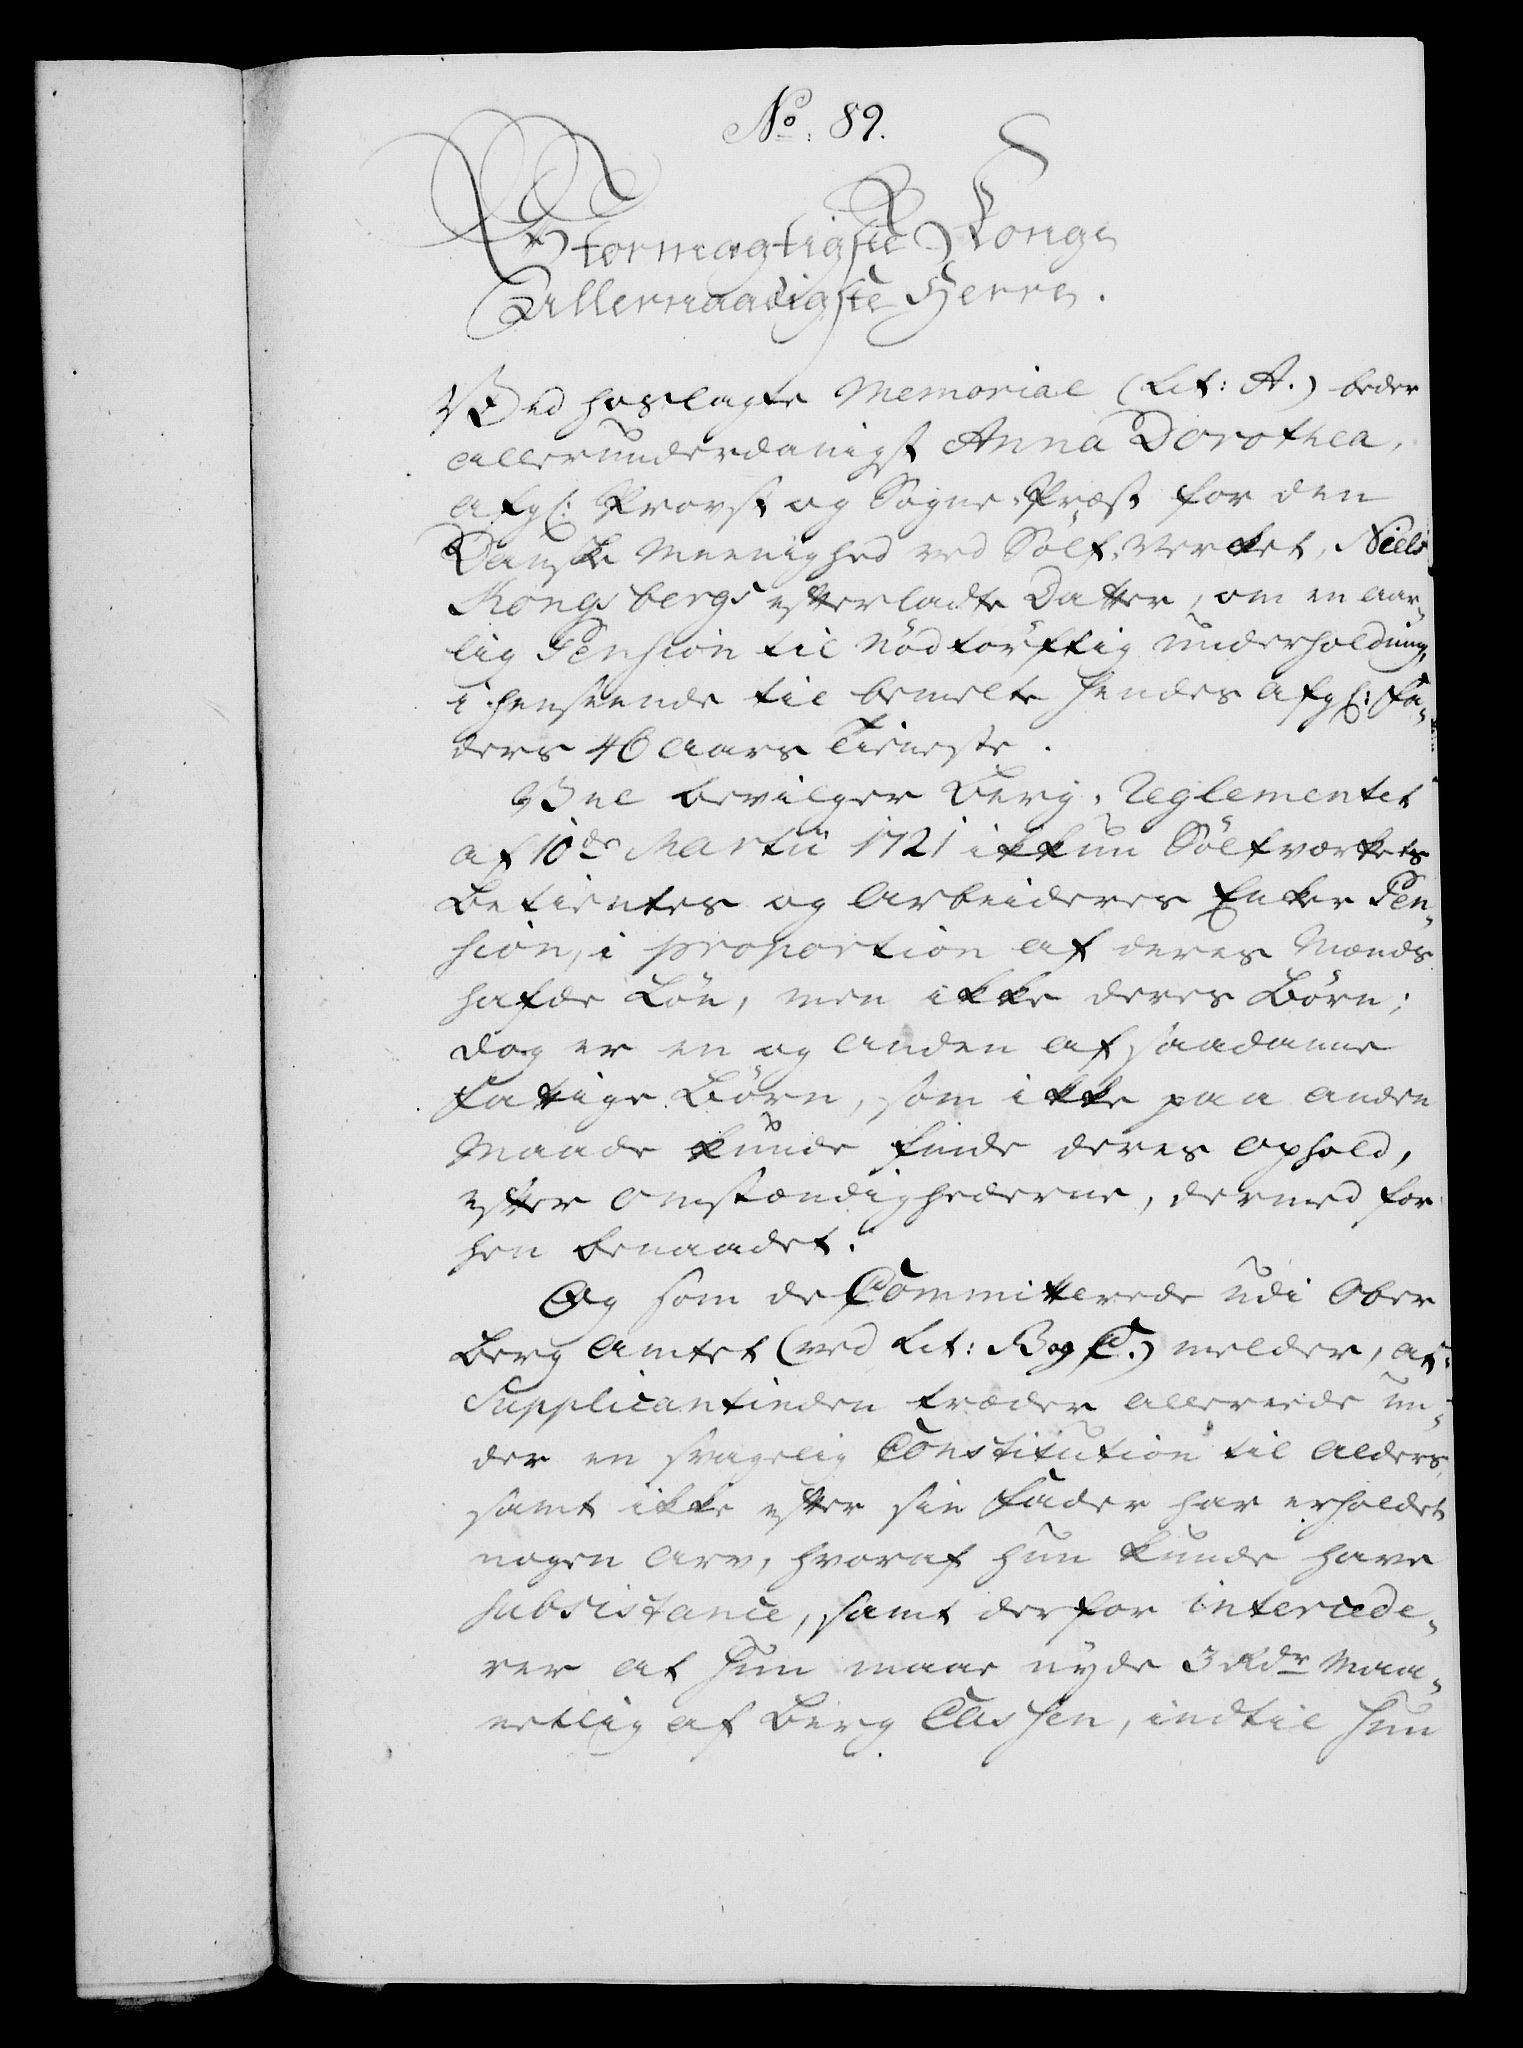 No. 89.
Stormægtigste Konge
Allernaadigste Herre.
Ved hoslagte Memorial (Lit: A.) beder
allerunderdanigst Anna Dorothea,
afgl: Provst og Sogne-Præst for den
Danske Meenighed ved Sölf-Verket, Niels
Kongsbergs efterladte Datter, om en aar-
lig Pension til nödtörftig underholdning,
i henseende til bemelte hendes afgl: Fa-
ders 46 aars Tieneste.
Vel bevilger Berg-Reglementet
af 10de Martii 1721 ikkun Sölfværkets
Betientes og Arbeideres Enker Pen-
sion, i proportion af deres Mænds
hafde Lön, men ikke deres Börn;
dog er en og anden af saadanne
Fattige Börn, som ikke paa anden
Maade kunde finde deres Ophold,
efter Omstændighederne, dermed for
hen benaadet.
Og som de Committerede udi Ober
Berg Amtet (ved Lit: B og C.) melder, at
Supplicantinden træder allereede un-
der en svagelig Constitution til Alders,
samt ikke efter sin Fader har erholdet
nogen Arv, hvoraf hun kunde have
subsistance, samt derfor intercede-
rer at hun maae nyde 3 Rdr Maa-
netlig af Berg Cassen, indtil hun